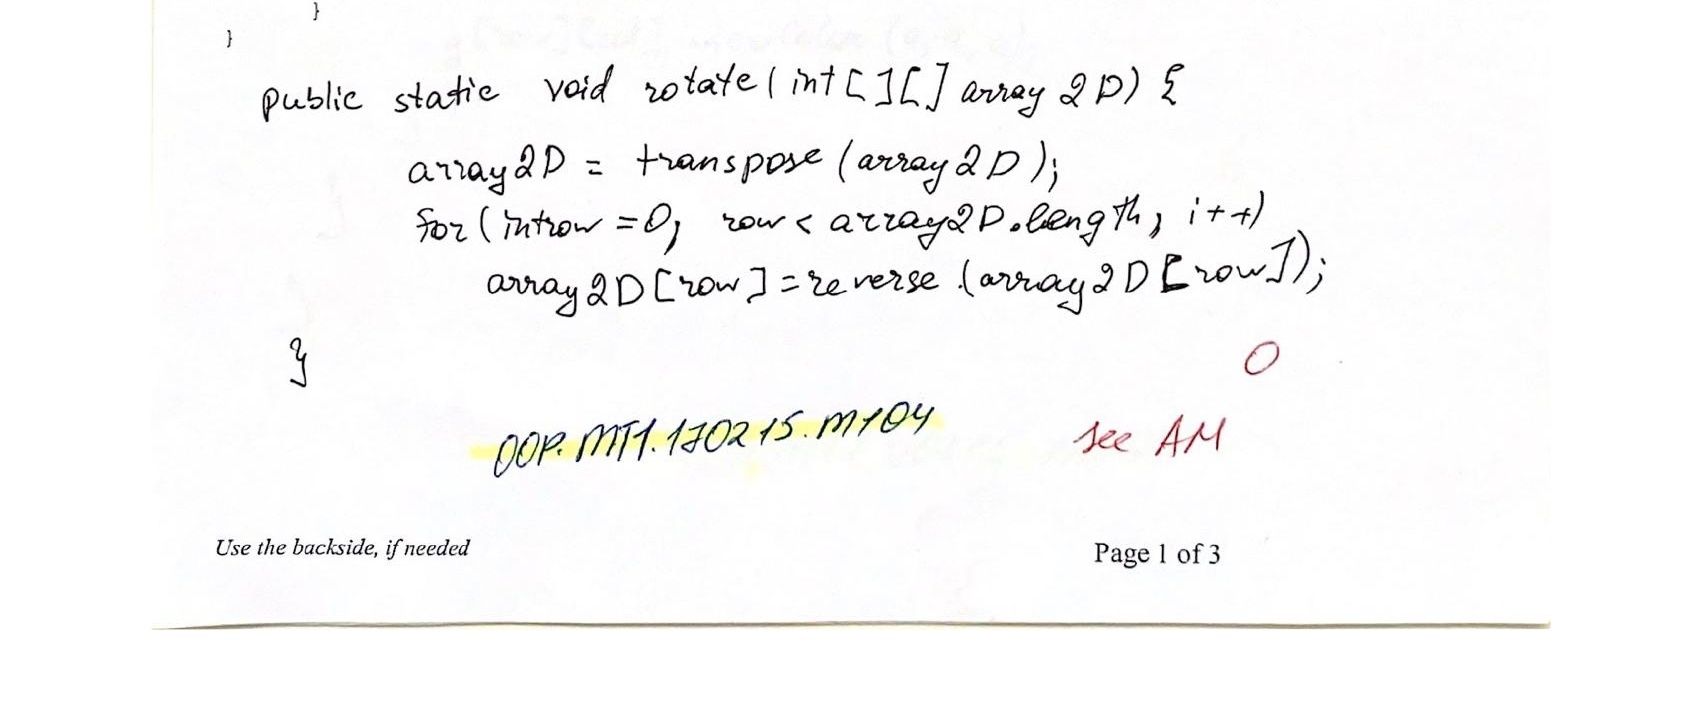 }
}
public static void rotate(int[][] array2D) {
array2D = transpose(array2D);
for(introw =0; row < array2D.length; i++)
array2D[row]=reverse(array2D[row]);
}
0
OOP.MT1.170215.M104
see AM
Use the backside, if needed
Page 1 of 3